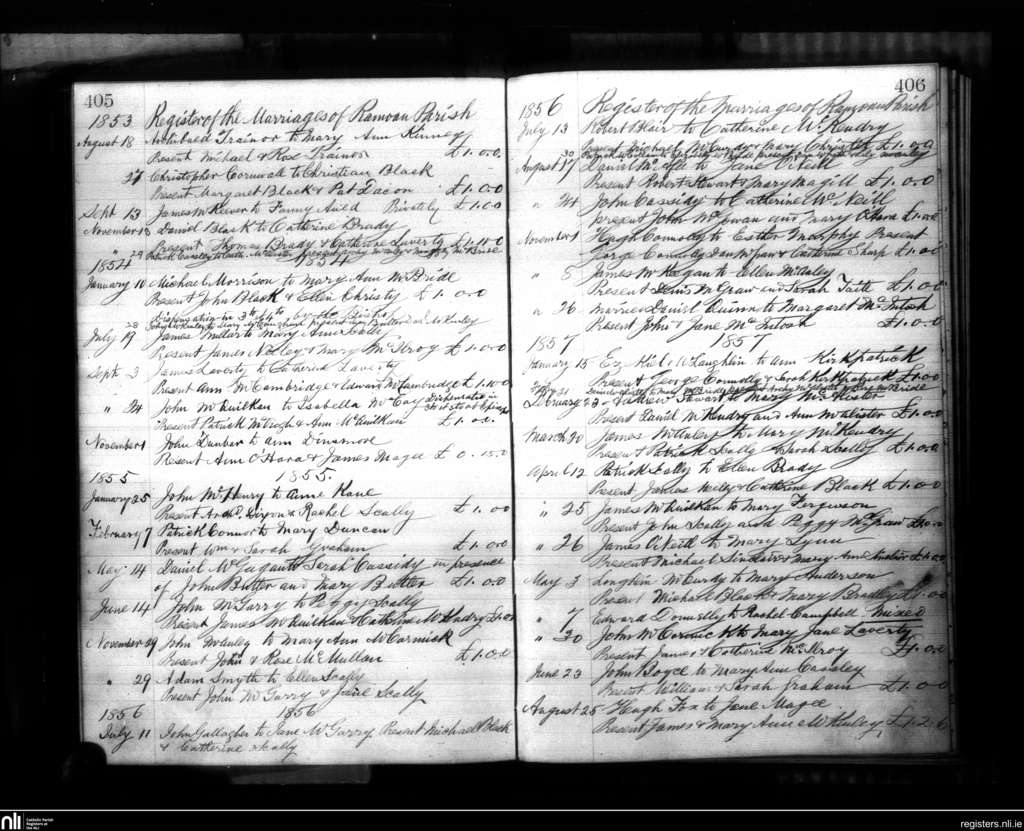 405
1853 Register of the Marriages of Ramoan Parish
August 18 Archibald Trainor to Mary Ann Kinney
Present Michael & Rose Trainor £1.0.0.
" 27 Christopher Cornwall to Christian Black
Present Margaret Black & Pat £1.0.0
Sept 13 James McKeever to Fanny Auld Privately £1.0.0
November 18 Daniel Black to Catherine Brady
Present Thomas Brady & Catherine Laverty £1.10.0
1854 1854
January 10 Michael Morrison to Mary Ann McBride
Present John Black & Ellen Christy £1.0.0
Dispensation in 3rd by the Bishop
July 19 James Millar to Mary Ann
Present James Neeley & Mary McIlroy £1.0.0
Septr 3 James Laverty to Catherine Laverty
Present Ann McCambridge & Edward McCambridge £1.10.0
" 24 John McQuilkan to Isabella McCay Dispensation in
Present Patrick & Ann McQuilkan £1.0.0.
November 1 John Dunbar to Ann Dinsmore
Present Ann O'Hara & James Magee £0.15.0
1855 1855.
January 25 John McHenry to Anne Kane
Present Archd. Dixon & Rachel Scally £1.0.0
February 7 Patrick Connor to Mary Duncan
Present Wm & Sarah Graham £1.0.0
May 14 Daniel to Sarah Cassidy in presence
of John Butter and Mary Butter £1.0.0
June 14 John McGarry to Peggy Scally
Present James McQuilkan & Catherine £1.0.0
November 29 John McAuley to Mary Ann McCormick
Present John & Rose McMullan £1.0.0
" 29 Adam Smyth to Ellen Scally
Present John McGarry & Jane Scally
1856 1856
July 11 John Gallagher to Jane McGarry Present Michael Black
& Catherine Scally
406
1856 Register of the Marriages of Ramoan Parish
July 13 Robert Blair to Catherine McKendry
Present Michael McCurdy & Mary Christy £1.0.0
August 17 Daniel McAfee to Jane O'Neill
Present Robert Stewart & Mary Magill £1.0.0
" 24 John Cassidy to Catherine McNeill
present John McGwan and Mary O'Hara £1.0.0
November 1 Hugh Connolly to Esther Murphy Present
George Connolly Dan & Catherine Sharp £1.0.0
" 8 James to Ellen McAuley
Present McGraw and Sarah Tait £1.0.0
" 26 married Daniel Quinn to Margaret McIntosh
Present John & Jane McIntosh £1.0.0
1857 1857
January 15 McLaughlin to Ann Kirkpatrick
Present George Connolly & Sarah Kirkpatrick £1.0.0
February 23 Stewart to Mary McAlister
Present Daniel McKendry and Ann McAlister £1.0.0
March 20 James McAuley to Mary McKendry
Present Patrick Scally & Sarah Scally £1.0.0
April 12 Patrick Scally to Ellen Brady
Present James Neeley & Catherine Black £1.0.0
" 25 James McQuilkan to Mary Ferguson
Present John Scally and Peggy McGraw £1.0.0
" 26 James O'Neill to Mary Lynn
Present Michael Sinclair & Mary Ann Sinclair £1.0.0
May 3 Loughlin McCurdy to Mary Anderson
Present Michael Black & Mary Bradley £1.0.0
" 7 Edward Donnelly to Rachel Campbell mixed
" 30 John McCormick to Mary Jane Laverty
Present James & Catherine McIlroy £1.0.0
June 23 John Boyce to Mary Ann Cassley
Present William & Sarah Graham £1.0.0
August 25 Hugh Fox to Jane Magee
Present James & Mary Ann McKinley £1.2.6
nli
Catholic Parish
Registers at
the NLI
registers.nli.ie